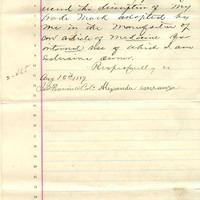 the description of my
Trade Mark adopted by
me in the Manufacture of
an article of Medicine for
internal use of which I am
exclusive owner.
Respectfully
Aug 18th
Alexander